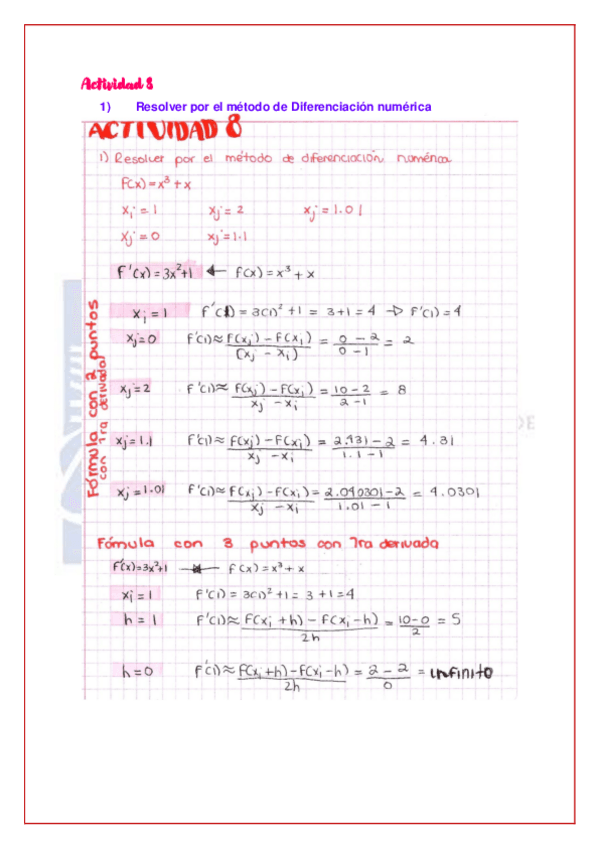 Actividad 8
1) Resolver por el método de Diferenciación numérica
ACTIVIDAD 8
1) Resolver por el método de diferenciación numérica
F(x) = x³ + x
xi = 1 xj = 2 xj = 1.01
xj = 0 xj = 1.1
F'(x) = 3x²+1 ← F(x) = x³ + x
Fórmula con 2 puntos
con 1ra derivada
xi = 1 F'(1) = 3(1)² + 1 = 3+1 = 4 → F'(1) = 4
xj = 0 F'(1) ≈ F(xj) − F(xi) / (xj − xi) = 0 − 2 / 0 − 1 = 2
xj = 2 F'(1) ≈ F(xj) − F(xi) / xj − xi = 10 − 2 / 2 − 1 = 8
xj = 1.1 F'(1) ≈ F(xj) − F(xi) / xj − xi = 2.431 − 2 / 1.1 − 1 = 4.31
xj = 1.01 F'(1) ≈ F(xj) − F(xi) / xj − xi = 2.040301 − 2 / 1.01 − 1 = 4.0301
DE
Fórmula con 3 puntos con 1ra derivada
F'(x) = 3x²+1 ← F(x) = x³ + x
xi = 1 F'(1) = 3(1)² + 1 = 3 + 1 = 4
h = 1 F'(1) ≈ F(xi + h) − F(xi − h) / 2h = 10 − 0 / 2 = 5
h = 0 F'(1) ≈ F(xi + h) − F(xi − h) / 2h = 2 − 2 / 0 = infinito